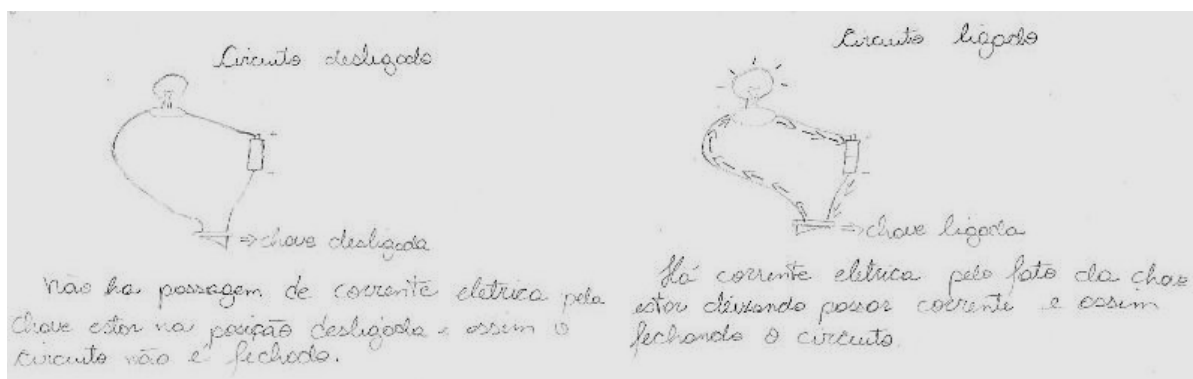 Circuito desligado
+
-
⇒ chave desligada
Não ha passagem de corrente elétrica pela
chave estar na posição desligada e assim o
circuito não é fechado.
Circuito ligado
+
-
⇒ chave ligada
Há corrente elétrica pelo fato da chave
estar deixando passar corrente e assim
fechando o circuito.